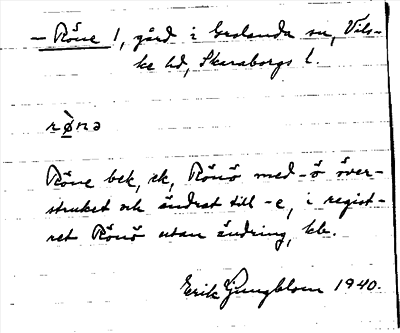 — Röne 1, gård i Grolanda sn, Vils-
ke hd, Skaraborgs l.
rø̀nə
Röne bek, ek, Rönö med -ö över-
struket och ändrat till -e, i regist-
ret Rönö utan ändring, kb.
Erik Ljungblom 1940.